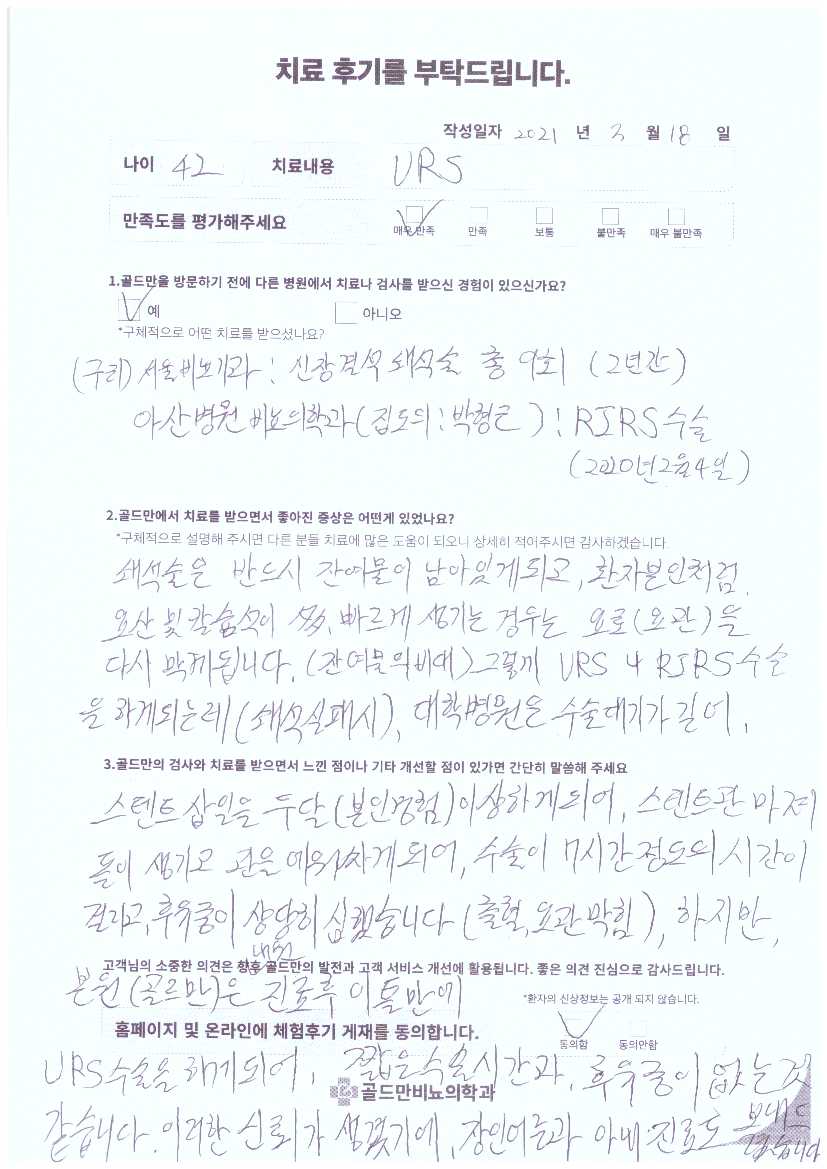 치료 후기를 부탁드립니다.
작성일자 2021 년 3 월 18 일
나이 42 치료내용 URS
만족도를 평가해주세요
매우 만족 만족 보통 불만족 매우 불만족
1.골드만을 방문하기 전에 다른 병원에서 치료나 검사를 받으신 경험이 있으신가요?
예 아니오
*구체적으로 어떤 치료를 받으셨나요?
(구리) 서울비뇨기과 : 신장결석 쇄석술 총 9회 (2년간)
아산병원 비뇨의학과 (집도의 : 박형근) : RIRS 수술
(2020년 2월 4일)
2.골드만에서 치료를 받으면서 좋아진 증상은 어떤게 있었나요?
*구체적으로 설명해 주시면 다른 분들 치료에 많은 도움이 되오니 상세히 적어주시면 감사하겠습니다
쇄석술은 반드시 잔여물이 남아있게되고, 환자본인처럼,
요산 및 칼슘석이 빠르게 생기는 경우는 요로(요관)을
다시 막게됩니다. (잔여물의 비대) 그렇게 URS 4 RIRS 수술
을 하게되는데 (쇄석실패시), 대학병원은 수술대기가 길어,
3.골드만의 검사와 치료를 받으면서 느낀 점이나 기타 개선할 점이 있가면 간단히 말씀해 주세요
스텐트 삽입을 두달 (본인경험) 이상하게되어, 스텐트관 마져
돌이 생기고 관을 되어, 수술이 7시간 정도의 시간이
걸리고, 후유증이 상당히 심했습니다 (출혈, 요관막힘), 하지만,
고객님의 소중한 의견은 향후 골드만의 발전과 고객 서비스 개선에 활용됩니다. 좋은 의견 진심으로 감사드립니다.
본원 (골드만)은 내원 진료후 이틀만에
*환자의 신상정보는 공개 되지 않습니다.
홈페이지 및 온라인에 체험후기 게재를 동의합니다. 동의함 동의안함
URS 수술을 하게되어, 짧은 수술시간과, 후유증이 없는것
골드만비뇨의학과
같습니다. 이러한 신뢰가 생겼기에, 장인어른과 아버 진료도 보내드렸습니다